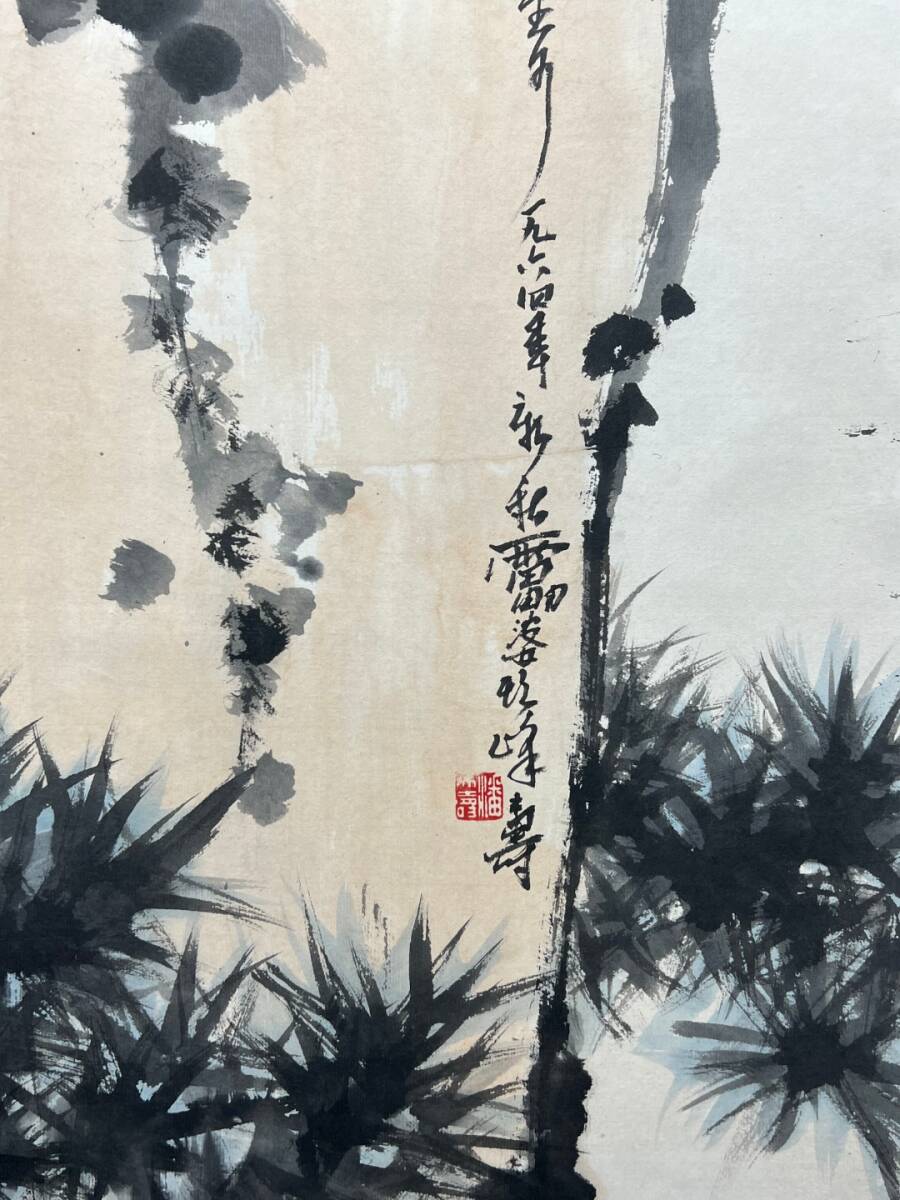 一九六四年新秋靁婆頭峰壽
潘天壽